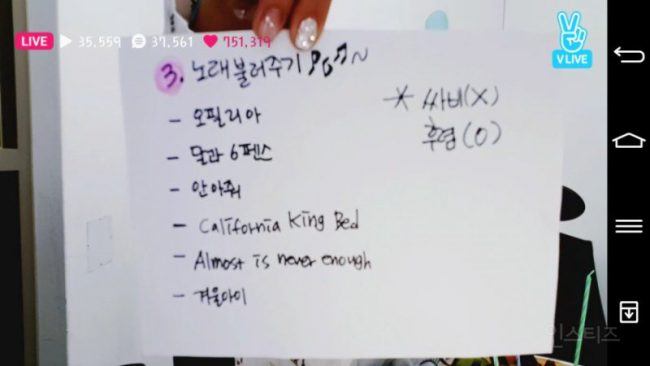 LIVE 35,559 37,561 751,319
V LIVE
3. 노래불러주기
* 싸비(X)
후렴(O)
- 오필리아
- 달과 6펜스
- 안아줘
- California King Bed
- Almost is never enough
- 겨울아이
인스티즈